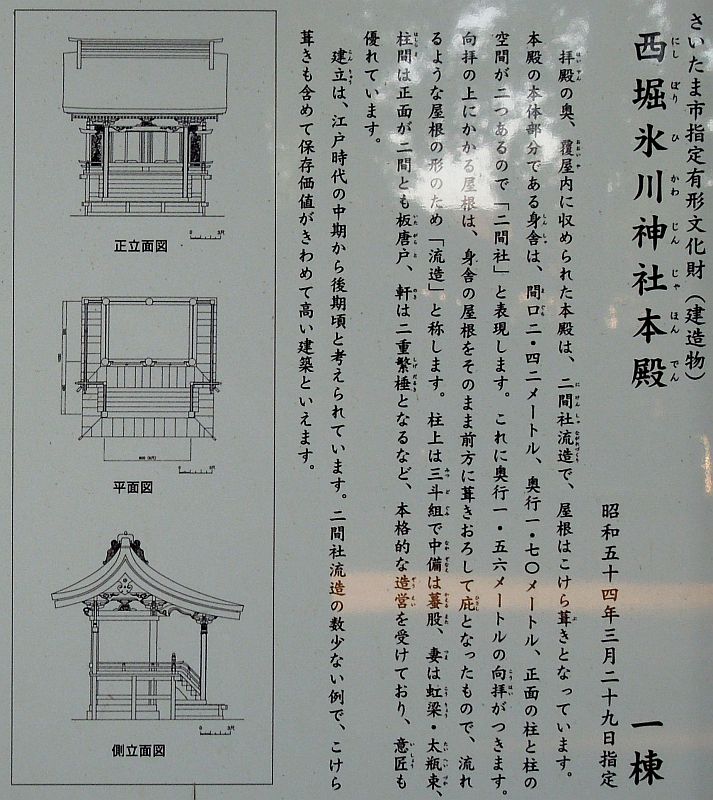 さいたま市指定有形文化財（建造物）
西堀氷川神社本殿　一棟
にし ぼり ひ かわ じん じゃ ほん でん
昭和五十四年三月二十九日指定
拝殿の奥、覆屋内に収められた本殿は、二間社流造で、屋根はこけら葺きとなっています。
本殿の本体部分である身舎は、間口二・四二メートル、奥行一・七〇メートル、正面の柱と柱の
空間が二つあるので「二間社」と表現します。これに奥行一・五六メートルの向拝がつきます。
向拝の上にかかる屋根は、身舎の屋根をそのまま前方に葺きおろして庇となったもので、流れ
るような屋根の形のため「流造」と称します。柱上は三斗組で中備は蟇股、妻は虹梁・太瓶束、
柱間は正面が二間とも板唐戸、軒は二重繁棰となるなど、本格的な造営を受けており、意匠も
優れています。
建立は、江戸時代の中期から後期頃と考えられています。二間社流造の数少ない例で、こけら
葺きも含めて保存価値がきわめて高い建築といえます。
正立面図
平面図
側立面図